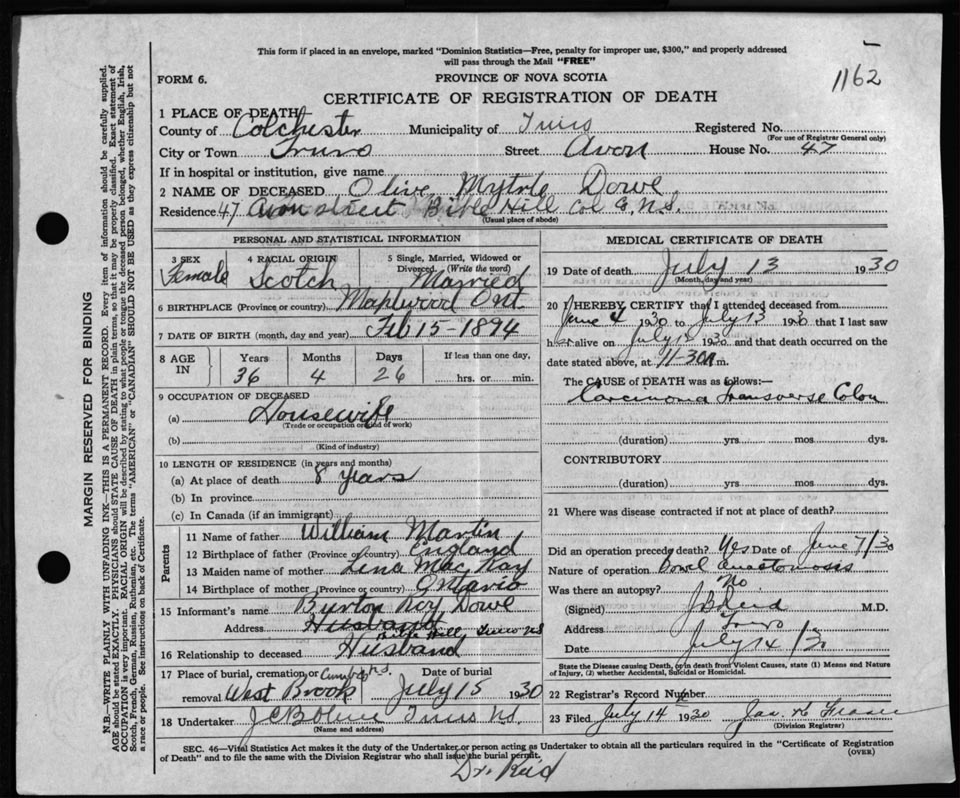 This form if placed in an envelope, marked "Dominion Statistics—Free, penalty for improper use, $300," and properly addressed
will pass through the Mail "FREE"
1162
FORM 6.
PROVINCE OF NOVA SCOTIA
CERTIFICATE OF REGISTRATION OF DEATH
1 PLACE OF DEATH
County of Colchester Municipality of Truro Registered No.
(For use of Registrar General only)
City or Town Truro Street Avon House No. 47
If in hospital or institution, give name
2 NAME OF DECEASED Olive Mytrle Dowe
Residence 47 Avon street Bible Hill Col Co N.S.
(Usual place of abode)
PERSONAL AND STATISTICAL INFORMATION
3 SEX 4 RACIAL ORIGIN 5 Single, Married, Widowed or
Divorced. (Write the word)
Female Scotch Married
6 BIRTHPLACE (Province or country) Maplwood Ont
7 DATE OF BIRTH (month, day and year) Feb 15-1894
8 AGE IN Years Months Days If less than one day,
36 4 26 hrs. or min.
9 OCCUPATION OF DECEASED
(a) Housewife
(Trade or occupation or kind of work)
(b)
(Kind of industry)
10 LENGTH OF RESIDENCE (in years and months)
(a) At place of death 8 years
(b) In province
(c) In Canada (if an immigrant)
Parents
11 Name of father William Martin
12 Birthplace of father (Province or country) England
13 Maiden name of mother Lena MacKay
14 Birthplace of mother (Province or country) Ontario
15 Informant's name Burton Roy Dowe
Address Husband Bible Hill, Truro NS
16 Relationship to deceased Husband
17 Place of burial, cremation, or Date of burial
removal West Brook July 15 1930
18 Undertaker Truro
(Name and address)
MEDICAL CERTIFICATE OF DEATH
19 Date of death July 13 1930
(Month, day and year)
20 I HEREBY CERTIFY that I attended deceased from
June 4 1930 to July 13 1930 that I last saw
her alive on July 1930 and that death occurred on
date stated above, at 11-30 m.
The CAUSE of DEATH was as follows:—
Carcinoma transverse Colon
(duration) yrs. mos. dys.
CONTRIBUTORY
(duration) yrs. mos. dys.
21 Where was disease contracted if not at place of death?
Did an operation precede death? Yes Date of June 7/30
Nature of operation Bowel anastomosis
Was there an autopsy? No
(Signed) M.D.
Address Truro
Date July 14/30
State the Disease causing Death, or in death from Violent Causes, state (1) Means and Nature
of Injury, and (2) whether Accidental, Suicidal or Homicidal.
22 Registrar's Record Number
23 Filed July 14 1930 Jas. Fraser
(Division Registrar)
SEC. 46—Vital Statistics Act makes it the duty of the Undertaker or person acting as Undertaker to obtain all the particulars required in the "Certificate of Registration
of Death" and to file the same with the Division Registrar who shall issue the burial permit.
(OVER)
Dr. Reid
MARGIN RESERVED FOR BINDING
N.B.—WRITE PLAINLY WITH UNFADING INK—THIS IS A PERMANENT RECORD. Every item of information should be carefully supplied.
AGE should be stated EXACTLY. PHYSICIANS should STATE CAUSE OF DEATH in plain terms, so that it may be properly classified. Exact statement of
OCCUPATION is very important. RACIAL ORIGIN will be described by stating to what people or tongue the deceased person belonged, whether English, Irish,
Scotch, French, German, Russian, Ruthenian, etc. The terms "AMERICAN" or "CANADIAN" SHOULD NOT BE USED as they express citizenship but not
a race or people. See instructions on back of Certificate.